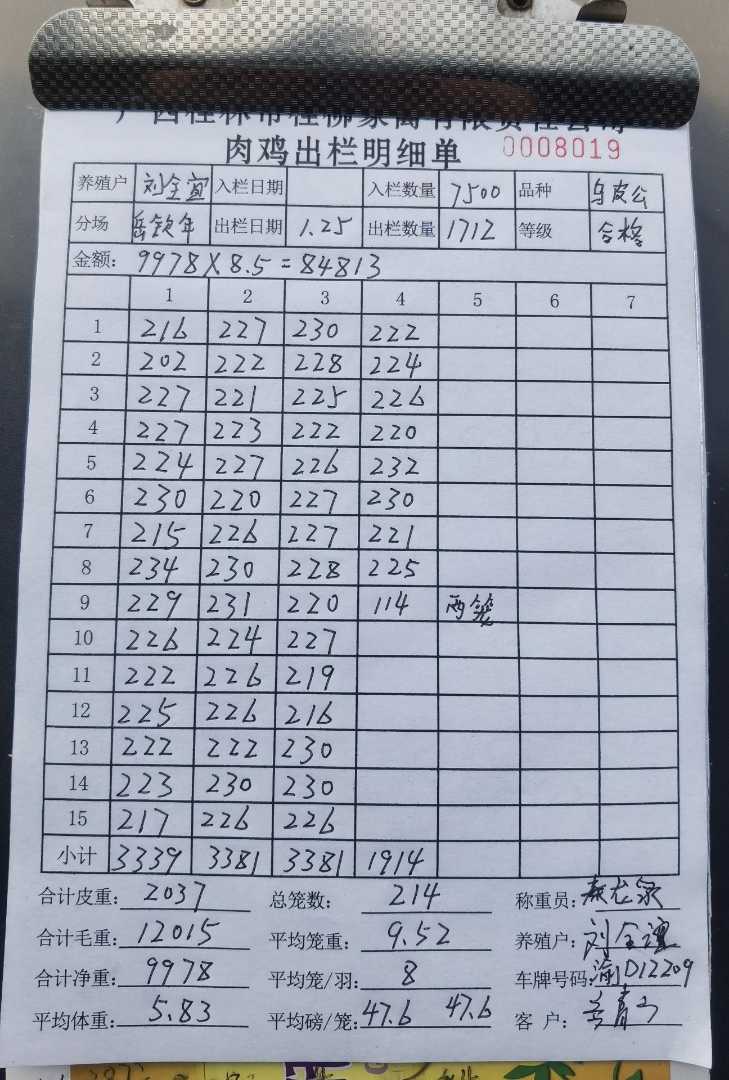 肉鸡出栏明细单 0008019
养殖户 刘全宜 入栏日期 入栏数量 7500 品种 乌皮公
分场 岳钦年 出栏日期 1.25 出栏数量 1712 等级 合格
金额: 9978×8.5=84813
1 2 3 4 5 6 7
1 216 227 230 222
2 202 222 228 224
3 227 221 225 226
4 227 223 222 220
5 224 227 226 232
6 230 220 227 230
7 215 226 227 221
8 234 230 228 225
9 229 231 220 114 两笼
10 226 224 227
11 222 226 219
12 225 226 216
13 222 222 230
14 223 230 230
15 217 226 226
小计 3339 3381 3381 1914
合计皮重: 2037 总笼数: 214 称重员:
合计毛重: 12015 平均笼重: 9.52 养殖户: 刘全谊
合计净重: 9978 平均笼/羽: 8 车牌号码: 渝D12209
平均体重: 5.83 平均磅/笼: 47.6 47.6 客户: